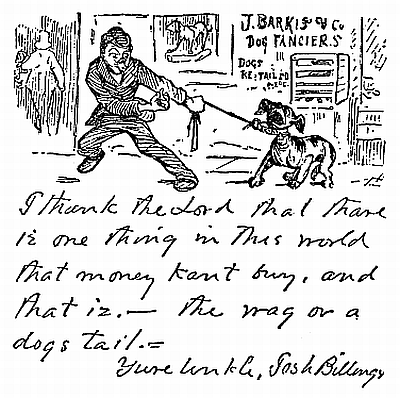 J. BARKIS & Co
DOG FANCIERS
DOGS
RE-TAILED
I thank the Lord that thare
iz one thing in this world
that money kant buy, and
that iz.— the wag ov a
dogs tail.=
Yure Unkle, Josh Billings